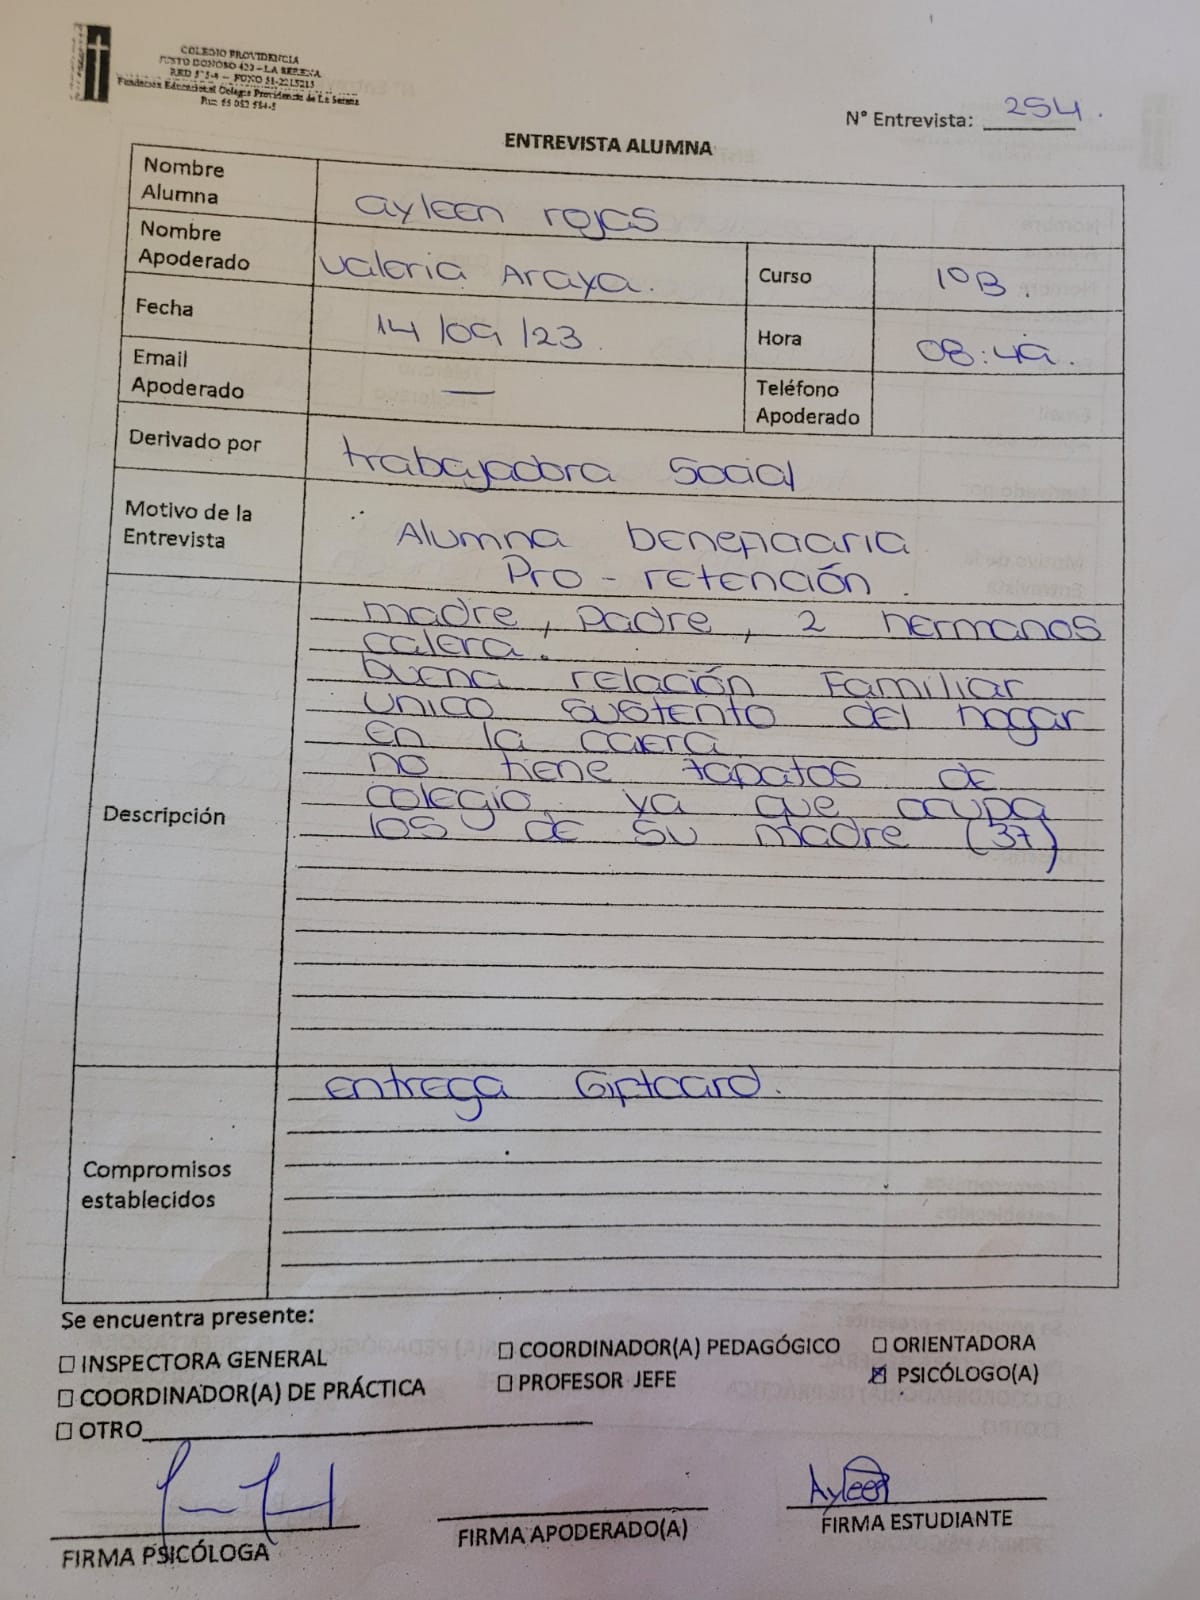 COLEGIO PROVIDENCIA
JUSTO DONOSO 420 – LA SERENA
FONO 51-2215215
Fundación Educacional Colegio Providencia de La Serena
N° Entrevista: 254.
ENTREVISTA ALUMNA
Nombre Alumna ayleen rojas
Nombre Apoderado Valeria Araya. Curso 1ºB.
Fecha 14/09/23. Hora 08:49.
Email Apoderado — Teléfono Apoderado
Derivado por trabajadora Social
Motivo de la Entrevista Alumna beneficiaria
Pro-retención.
Descripción
madre, padre, 2 hermanos
calera.
buena relación Familiar
unico sustento del hogar
en la
no tiene zapatos de
colegio, ya que ocupa
los de su madre (37)
Compromisos establecidos
entrega Giftcard.
Se encuentra presente:
☐ INSPECTORA GENERAL ☐ COORDINADOR(A) PEDAGÓGICO ☐ ORIENTADORA
☐ COORDINADOR(A) DE PRÁCTICA ☐ PROFESOR JEFE ☒ PSICÓLOGO(A)
☐ OTRO
Ayleen
FIRMA PSICÓLOGA FIRMA APODERADO(A) FIRMA ESTUDIANTE